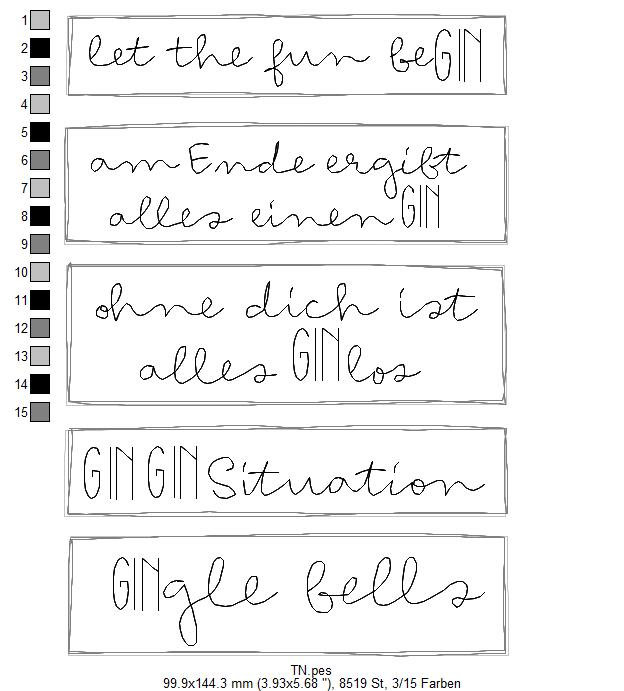 1
2
3
4
5
6
7
8
9
10
11
12
13
14
15
let the fun beGIN
am Ende ergibt
alles einen GIN
ohne dich ist
alles GINlos
GIN GIN Situation
GINgle bells
TN.pes
99.9x144.3 mm (3.93x5.68 "), 8519 St, 3/15 Farben